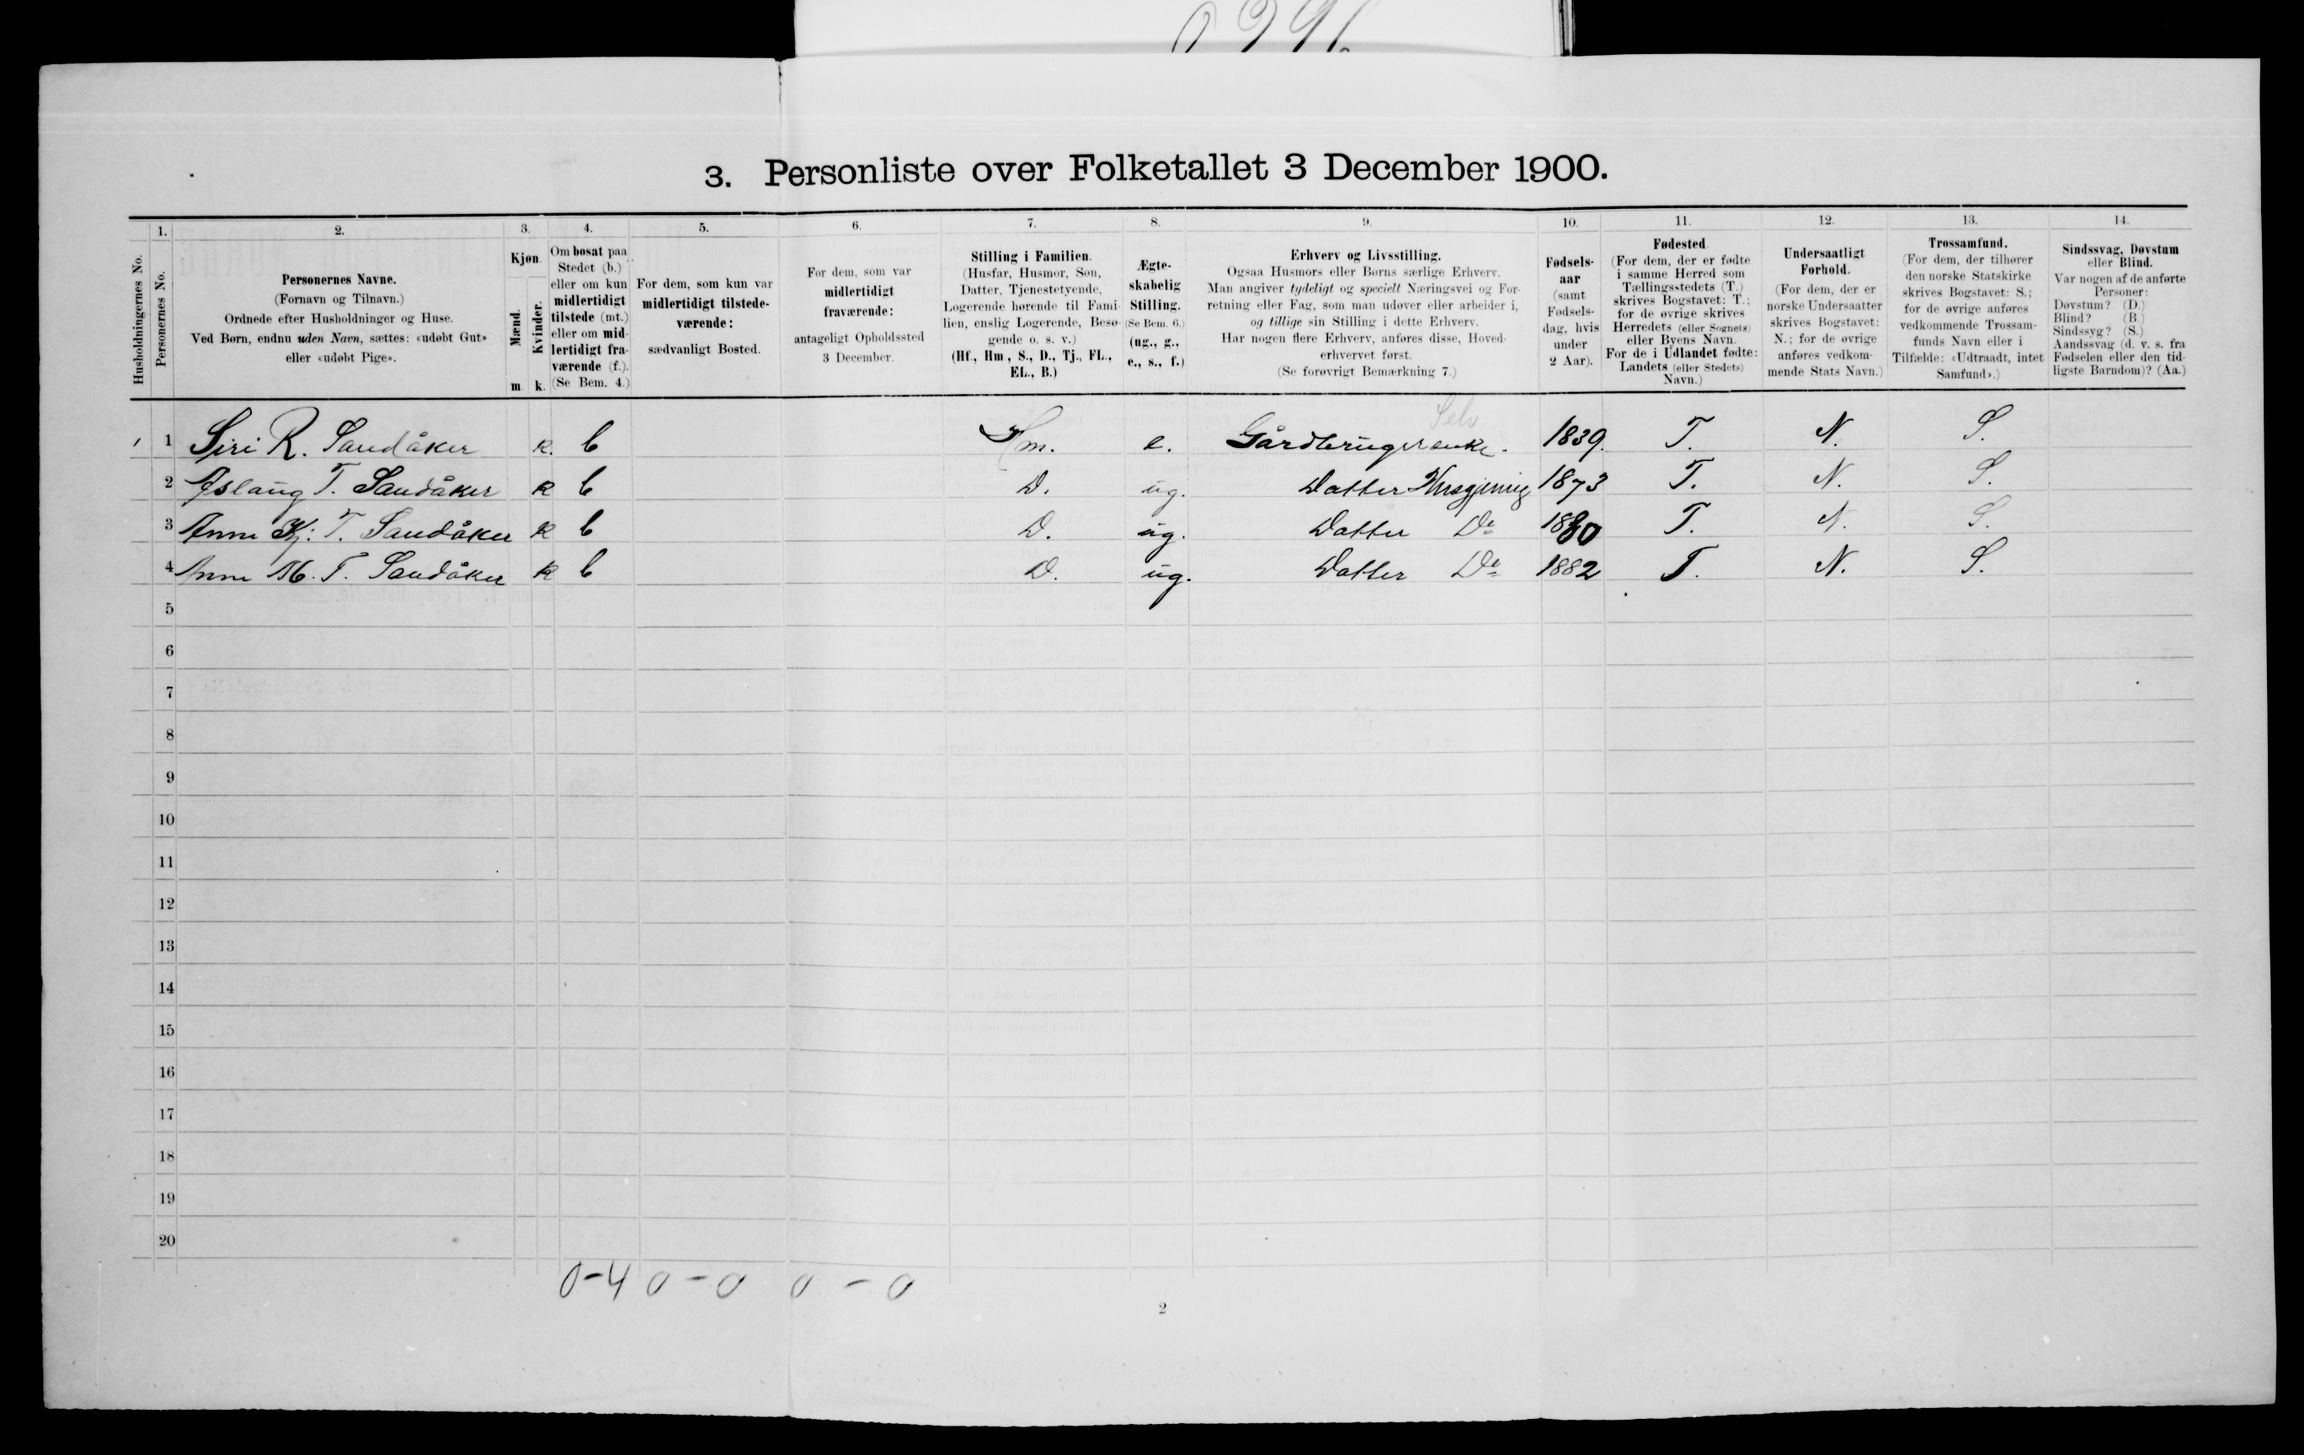 3. Personliste over Folketallet 3 December 1900.
1. 2. 3. 4. 5. 6. 7. 8. 9. 10. 11. 12. 13. 14.
Husholdningernes No.
Personernes No.
Personernes Navne.
(Fornavn og Tilnavn.)
Ordnede efter Husholdninger og Huse.
Ved Børn, endnu uden Navn, sættes: «udøbt Gut»
eller «udøbt Pige».
Kjøn.
Mænd.
Kvinder.
m. k.
Om bosat paa
Stedet (b.)
eller om kun
midlertidigt
tilstede (mt.)
eller om mid-
lertidigt fra-
værende (f.).
(Se Bem. 4.)
For dem, som kun var
midlertidigt tilstede-
værende:
sædvanligt Bosted.
For dem, som var
midlertidigt
fraværende:
antageligt Opholdssted
3 December.
Stilling i Familien.
(Husfar, Husmor, Søn,
Datter, Tjenestetyende,
Logerende hørende til Fami-
lien, enslig Logerende, Besø-
gende o. s. v.)
(Hf., Hm., S., D., Tj., FL.,
EL., B.)
Ægte-
skabelig
Stilling.
(Se Bem. 6.)
(ug., g.,
e., s., f.)
Erhverv og Livsstilling.
Ogsaa Husmors eller Børns særlige Erhverv.
Man angiver tydeligt og specielt Næringsvei og For-
retning eller Fag, som man udøver eller arbeider i,
og tillige sin Stilling i dette Erhverv.
Har nogen flere Erhverv, anføres disse, Hoved-
erhvervet først.
(Se forøvrigt Bemærkning 7.)
Fødsels-
aar
(samt
Fødsels-
dag, hvis
under
2 Aar).
Fødested
(For dem, der er fødte
i samme Herred som
Tællingsstedets (T.)
skrives Bogstavet: T.;
for de øvrige skrives
Herredets (eller Sognets)
eller Byens Navn.
For de i Udlandet fødte:
Landets (eller Stedets)
Navn.)
Undersaatligt
Forhold.
(For dem, der er
norske Undersaatter
skrives Bogstavet:
N.; for de øvrige
anføres vedkom-
mende Stats Navn.)
Trossamfund.
(For dem, der tilhører
den norske Statskirke
skrives Bogstavet: S.;
for de øvrige anføres
vedkommende Trossam-
funds Navn eller i
Tilfælde: «Udtraadt, intet
Samfund».)
Sindssvag, Døvstum
eller Blind.
Var nogen af de anførte
Personer:
Døvstum? (D.)
Blind? (B.)
Sindssyg? (S.)
Aandssvag (d. v. s. fra
Fødselen eller den tid-
ligste Barndom)? (Aa.)
Selv
1 1 Siri R. Sandåker k. b Hm. e. Gårdbrugerenke. 1839. T. N. S.
2 Aslaug T. Sandåker k b D. ug. Datter Husgjerning 1873 T. N. S.
3 Anne Kj: T. Sandåker k b D. ug. Datter Do 1880 T. N. S.
4 Anne M. T. Sandåker k b D. ug. Datter Do 1882 T. N. S.
5
6
7
8
9
10
11
12
13
14
15
16
17
18
19
20
0-4 0-0 0-0
2